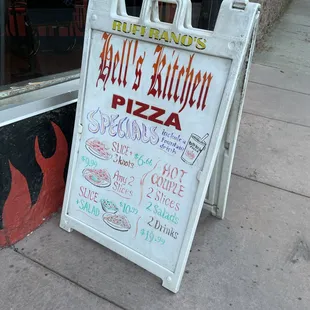 RUFFRANO'S
Hell's Kitchen
PIZZA
Specials
include a
fountain
drink
SLICE +
3 knots
Any 2
slices
SLICE
+ SALAD
HOT
COUPLE
2 Slices
2 Salads
2 Drinks
$19.99